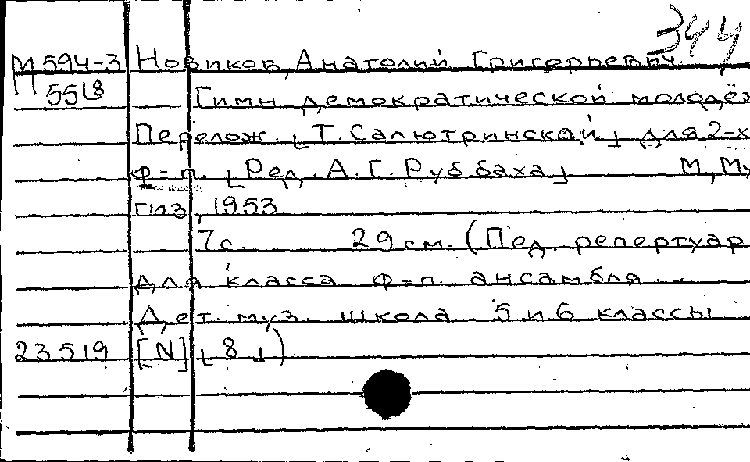 344
М594-3 Новиков, Анатолий Григорьевич.
П 55 Гимн демократической молодёж
Перелож. [Т. Салютринской] для 2-х
ф=п. [Ред. А. Г. Руббаха] М, Му
гиз, 1953
7с. 29 см. (Пед. репертуар
для класса ф=п. ансамбля.
Дет. муз. школа 5 и 6 классы
23519 [N] [8])